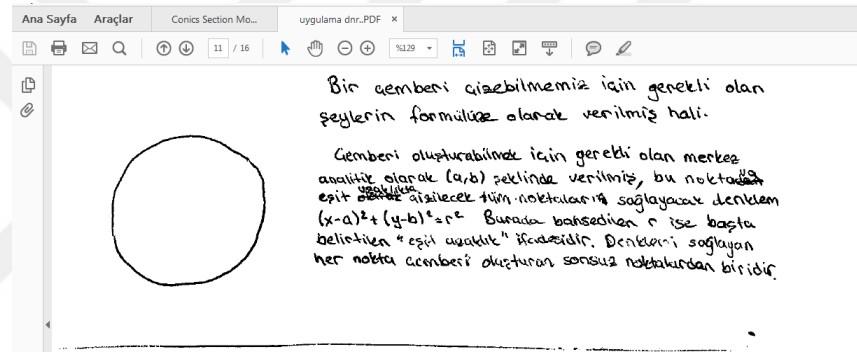 Ana Sayfa Araçlar Conics Section Mo... uygulama dnr..PDF ×
11 / 16 %129
Bir çemberi çizebilmemiz için gerekli olan
şeylerin formülüze olarak verilmiş hali.
Çemberi oluşturabilmek için gerekli olan merkez
analitik olarak (a,b) şeklinde verilmiş, bu noktaya
eşit uzaklıkta çizilecek tüm noktaları sağlayacak denklem
(x-a)²+(y-b)²=r² Burada bahsedilen r ise başta
belirtilen "eşit uzaklık" ifadesidir. Denklemi sağlayan
her nokta çemberi oluşturan sonsuz noktalardan biridir.